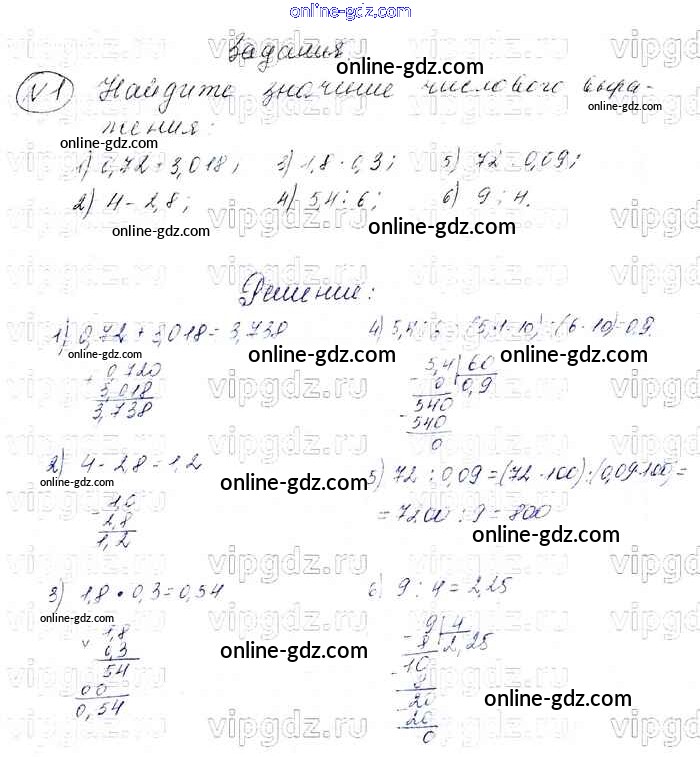 online-gdz.com
Задания
№1 Найдите значение числового выра-
жения:
1) 0,72 + 3,018; 3) 1,8 · 0,3; 5) 72 : 0,09;
2) 4 - 2,8; 4) 5,4 : 6; 6) 9 : 4.
Решение:
1) 0,72 + 3,018 = 3,738
+ 0,720
3,018
3,738
2) 4 - 2,8 = 1,2
- 4,0
2,8
1,2
3) 1,8 · 0,3 = 0,54
1,8
0,3
54
00
0,54
4) 5,4 : 6 = (5,4 · 10) : (6 · 10) = 0,9.
5,4 60
- 0 0,9
540
- 540
0
5) 72 : 0,09 = (72 · 100) : (0,09 · 100) =
= 7200 : 9 = 800
6) 9 : 4 = 2,25
- 9 4
8 2,25
- 10
8
- 20
20
0
online-gdz.com
vipgdz.ru